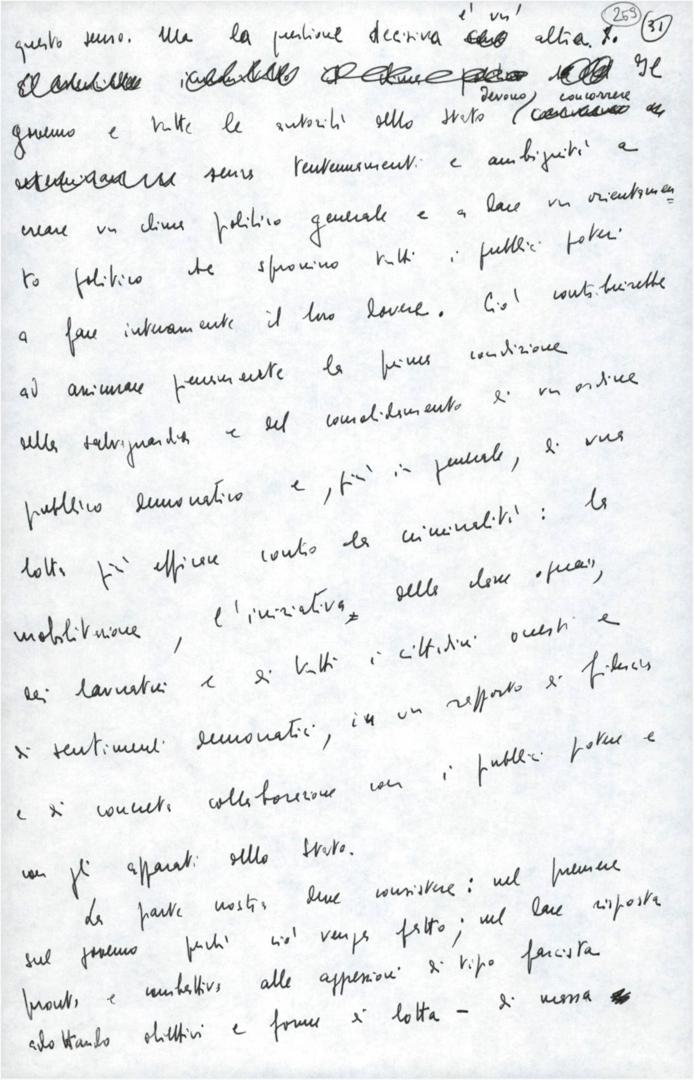 259 31
è un'
questo senso. Ma la questione decisiva altra.
Il
devono, concorrere
governo e tutte le autorità dello Stato
senza tentennamenti e ambiguità a
creare un clima politico generale e a dare un orientamen=
to politico che spronino tutti i pubblici poteri
a fare interamente il loro dovere. Ciò contribuirebbe
ad assicurare pienamente la prima condizione
della salvaguardia e del consolidamento di un ordine
pubblico democratico e, più in generale, di una
lotta più efficace contro la criminalità: la
mobilitazione, l'iniziativa, della classe operaia,
dei lavoratori e di tutti i cittadini onesti e
di sentimenti democratici, in un rapporto di fiducia
e di concreta collaborazione con i pubblici poteri e
con gli apparati dello Stato.
La parte nostra deve consistere: nel premere
sul governo perché ciò venga fatto; nel dare risposta
pronta e combattiva alle aggressioni di tipo fascista
adottando obiettivi e forme di lotta – di massa